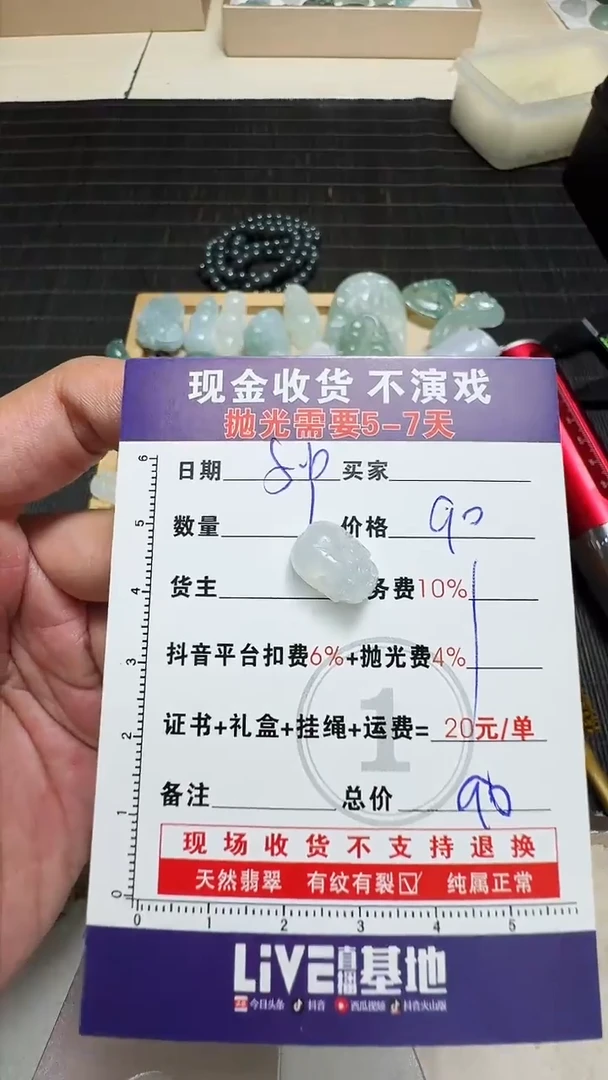 现金收货 不演戏
抛光需要5-7天
日期 买家
数量 价格 90
货主 务费10%
抖音平台扣费6%+抛光费4%
证书+礼盒+挂绳+运费= 20元/单
备注 总价 90
1
现场收货不支持退换
天然翡翠 有纹有裂☑ 纯属正常
0 1 2 3 4 5 6
0 1 2 3 4 5
LiVE直播基地
今日头条 抖音 西瓜视频 抖音火山版